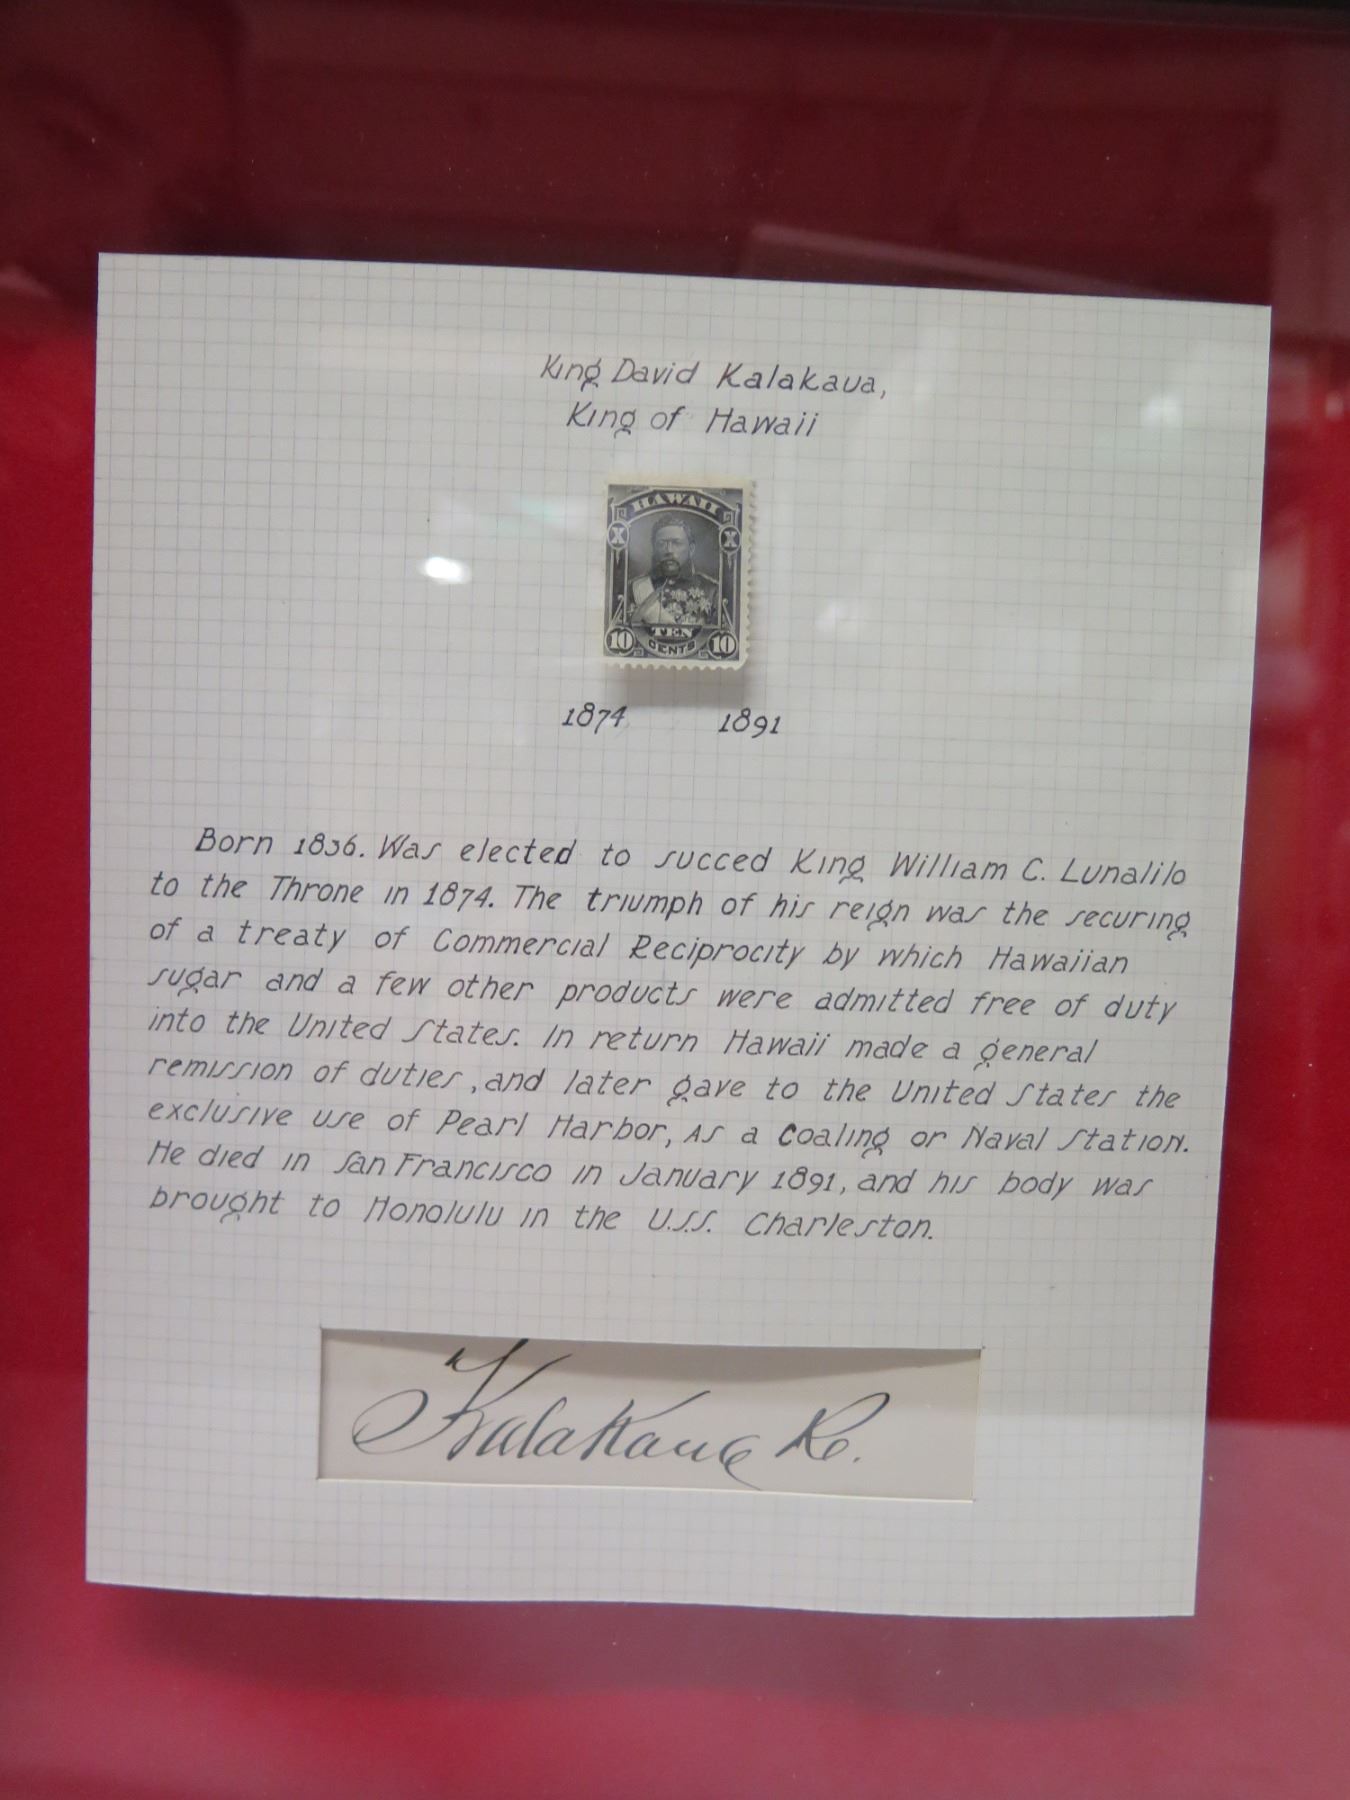 King David Kalakaua,
King of Hawaii
HAWAII
X X
TEN
10 CENTS 10
1874 1891
Born 1836. Was elected to succed King William C. Lunalilo
to the Throne in 1874. The triumph of his reign was the securing
of a treaty of Commercial Reciprocity by which Hawaiian
sugar and a few other products were admitted free of duty
into the United States. In return Hawaii made a general
remission of duties, and later gave to the United States the
exclusive use of Pearl Harbor, As a Coaling or Naval Station.
He died in San Francisco in January 1891, and his body was
brought to Honolulu in the U.S.S. Charleston.
Kalakaua R.